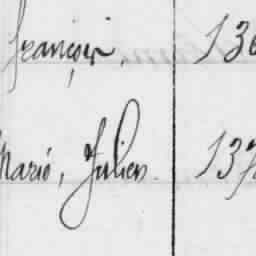 François, 13
Marié, Julien. 137